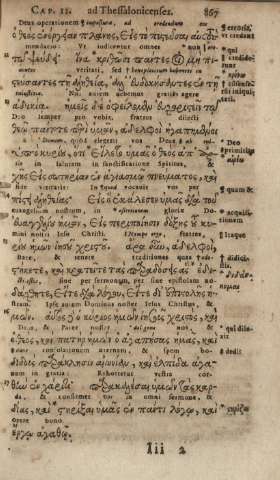 CAP. II. ad Thessalonicenses. 867
Deus operationem ad credendum
ὁ θεὸς ἐνέργειαν πλάνης, εἰς τὸ πιστεῦσαι αὐτοὺς
mendacio: Vt iudicentur omnes non
τῷ ψεύδει· ἵνα κριθῶσι πάντες οἱ μὴ πι-
veritati, sed
στεύσαντες τῇ ἀληθείᾳ, ἀλλ' εὐδοκήσαντες ἐν τῇ
iniquitati. Nos autem debemus gratias agere
ἀδικίᾳ. ἡμεῖς δὲ ὀφείλομεν εὐχαριστεῖν τῷ
Deo semper pro vobis, fratres dilecti
θεῷ πάντοτε περὶ ὑμῶν, ἀδελφοὶ ἠγαπημένοι
Domino, quòd elegerit vos Deus
ὑπὸ κυρίου, ὅτι εἵλετο ὑμᾶς ὁ θεὸς ἀπ' ἀρ-
in salutem in sanctificatione Spiritus,
χῆς εἰς σωτηρίαν ἐν ἁγιασμῷ πνεύματος, καὶ
fide veritatis: In quod vocauit vos per
πίστει ἀληθείας· εἰς ὃ ἐκάλεσεν ὑμᾶς διὰ τοῦ
euangelium nostrum, in gloriæ Do-
εὐαγγελίου ἡμῶν, εἰς περιποίησιν δόξης τοῦ κυ-
mini nostri Iesu Christi. fratres,
ρίου ἡμῶν ἰησοῦ χριστοῦ. ἄρα οὖν, ἀδελφοὶ,
state, & tenete traditiones quas
στήκετε, καὶ κρατεῖτε τὰς παραδόσεις ἃς ἐδι-
siue per sermonem, per epistolam no-
δάχθητε, εἴτε διὰ λόγου, εἴτε δι' ἐπιστολῆς ἡ-
stram. Ipse autem Dominus noster Iesus Christus, &
μῶν. αὐτὸς δὲ ὁ κύριος ἡμῶν ἰησοῦς χριστὸς, καὶ
Deus, & Pater noster nos, &
ὁ θεὸς, καὶ πατὴρ ἡμῶν ὁ ἀγαπήσας ἡμᾶς, καὶ
consolationem æternam, & spem bo-
δοὺς παράκλησιν αἰωνίαν, καὶ ἐλπίδα ἀγα-
nam in gratia: Exhortetur vestra cor-
θὴν ἐν χάριτι· παρακαλέσαι ὑμῶν τὰς καρ-
da, & confirmet in omni sermone, &
δίας, καὶ στηρίξαι ὑμᾶς ἐν παντὶ λόγῳ, καὶ
opere bono.
ἔργῳ ἀγαθῷ.
Iii 2